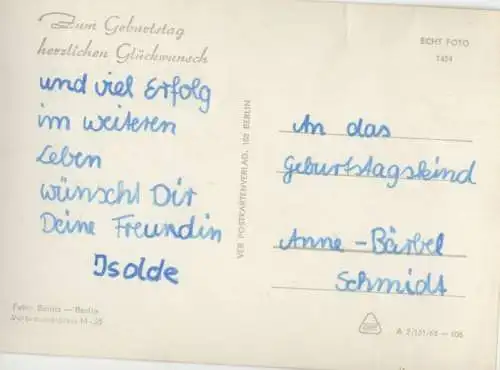 Zum Geburtstag
herzlichen Glückwunsch
und viel Erfolg
im weiteren
Leben
wünscht Dir
Deine Freundin
Isolde
Foto: — Berlin
M -25
VEB POSTKARTENVERLAG, 102 BERLIN
ECHT FOTO
An das
Geburtstagskind
Anne-Bärbel
Schmidt